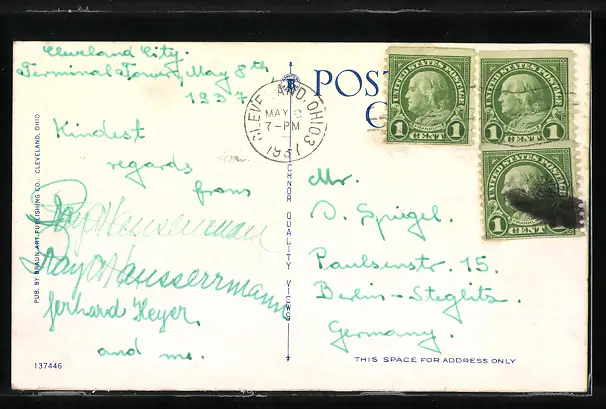 Cleveland City.
Terminal Tower, May 8th,
1937.
Kindest
regards
from
Ray Hausserrmann
Gerhard Heyer,
and me.
PUB. BY BRAUN ART PUBLISHING CO., CLEVELAND, OHIO
137446
CLEVELAND, OHIO
MAY 8
7-PM
1937
POST
C
UNITED STATES POSTAGE
1 CENT 1
UNITED STATES POSTAGE
1 CENT 1
UNITED STATES POSTAGE
1 CENT
QUALITY VIEWS
Mr.
D. Spiegel.
Paulsenstr. 15.
Berlin-Steglitz.
Germany.
THIS SPACE FOR ADDRESS ONLY